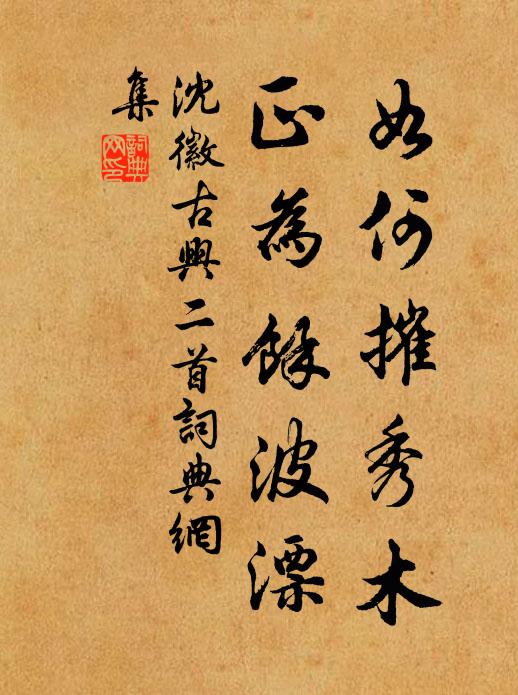 如何摧秀木
正為餘波漂
沈徽古興二首詞典網
集
詞典
网印